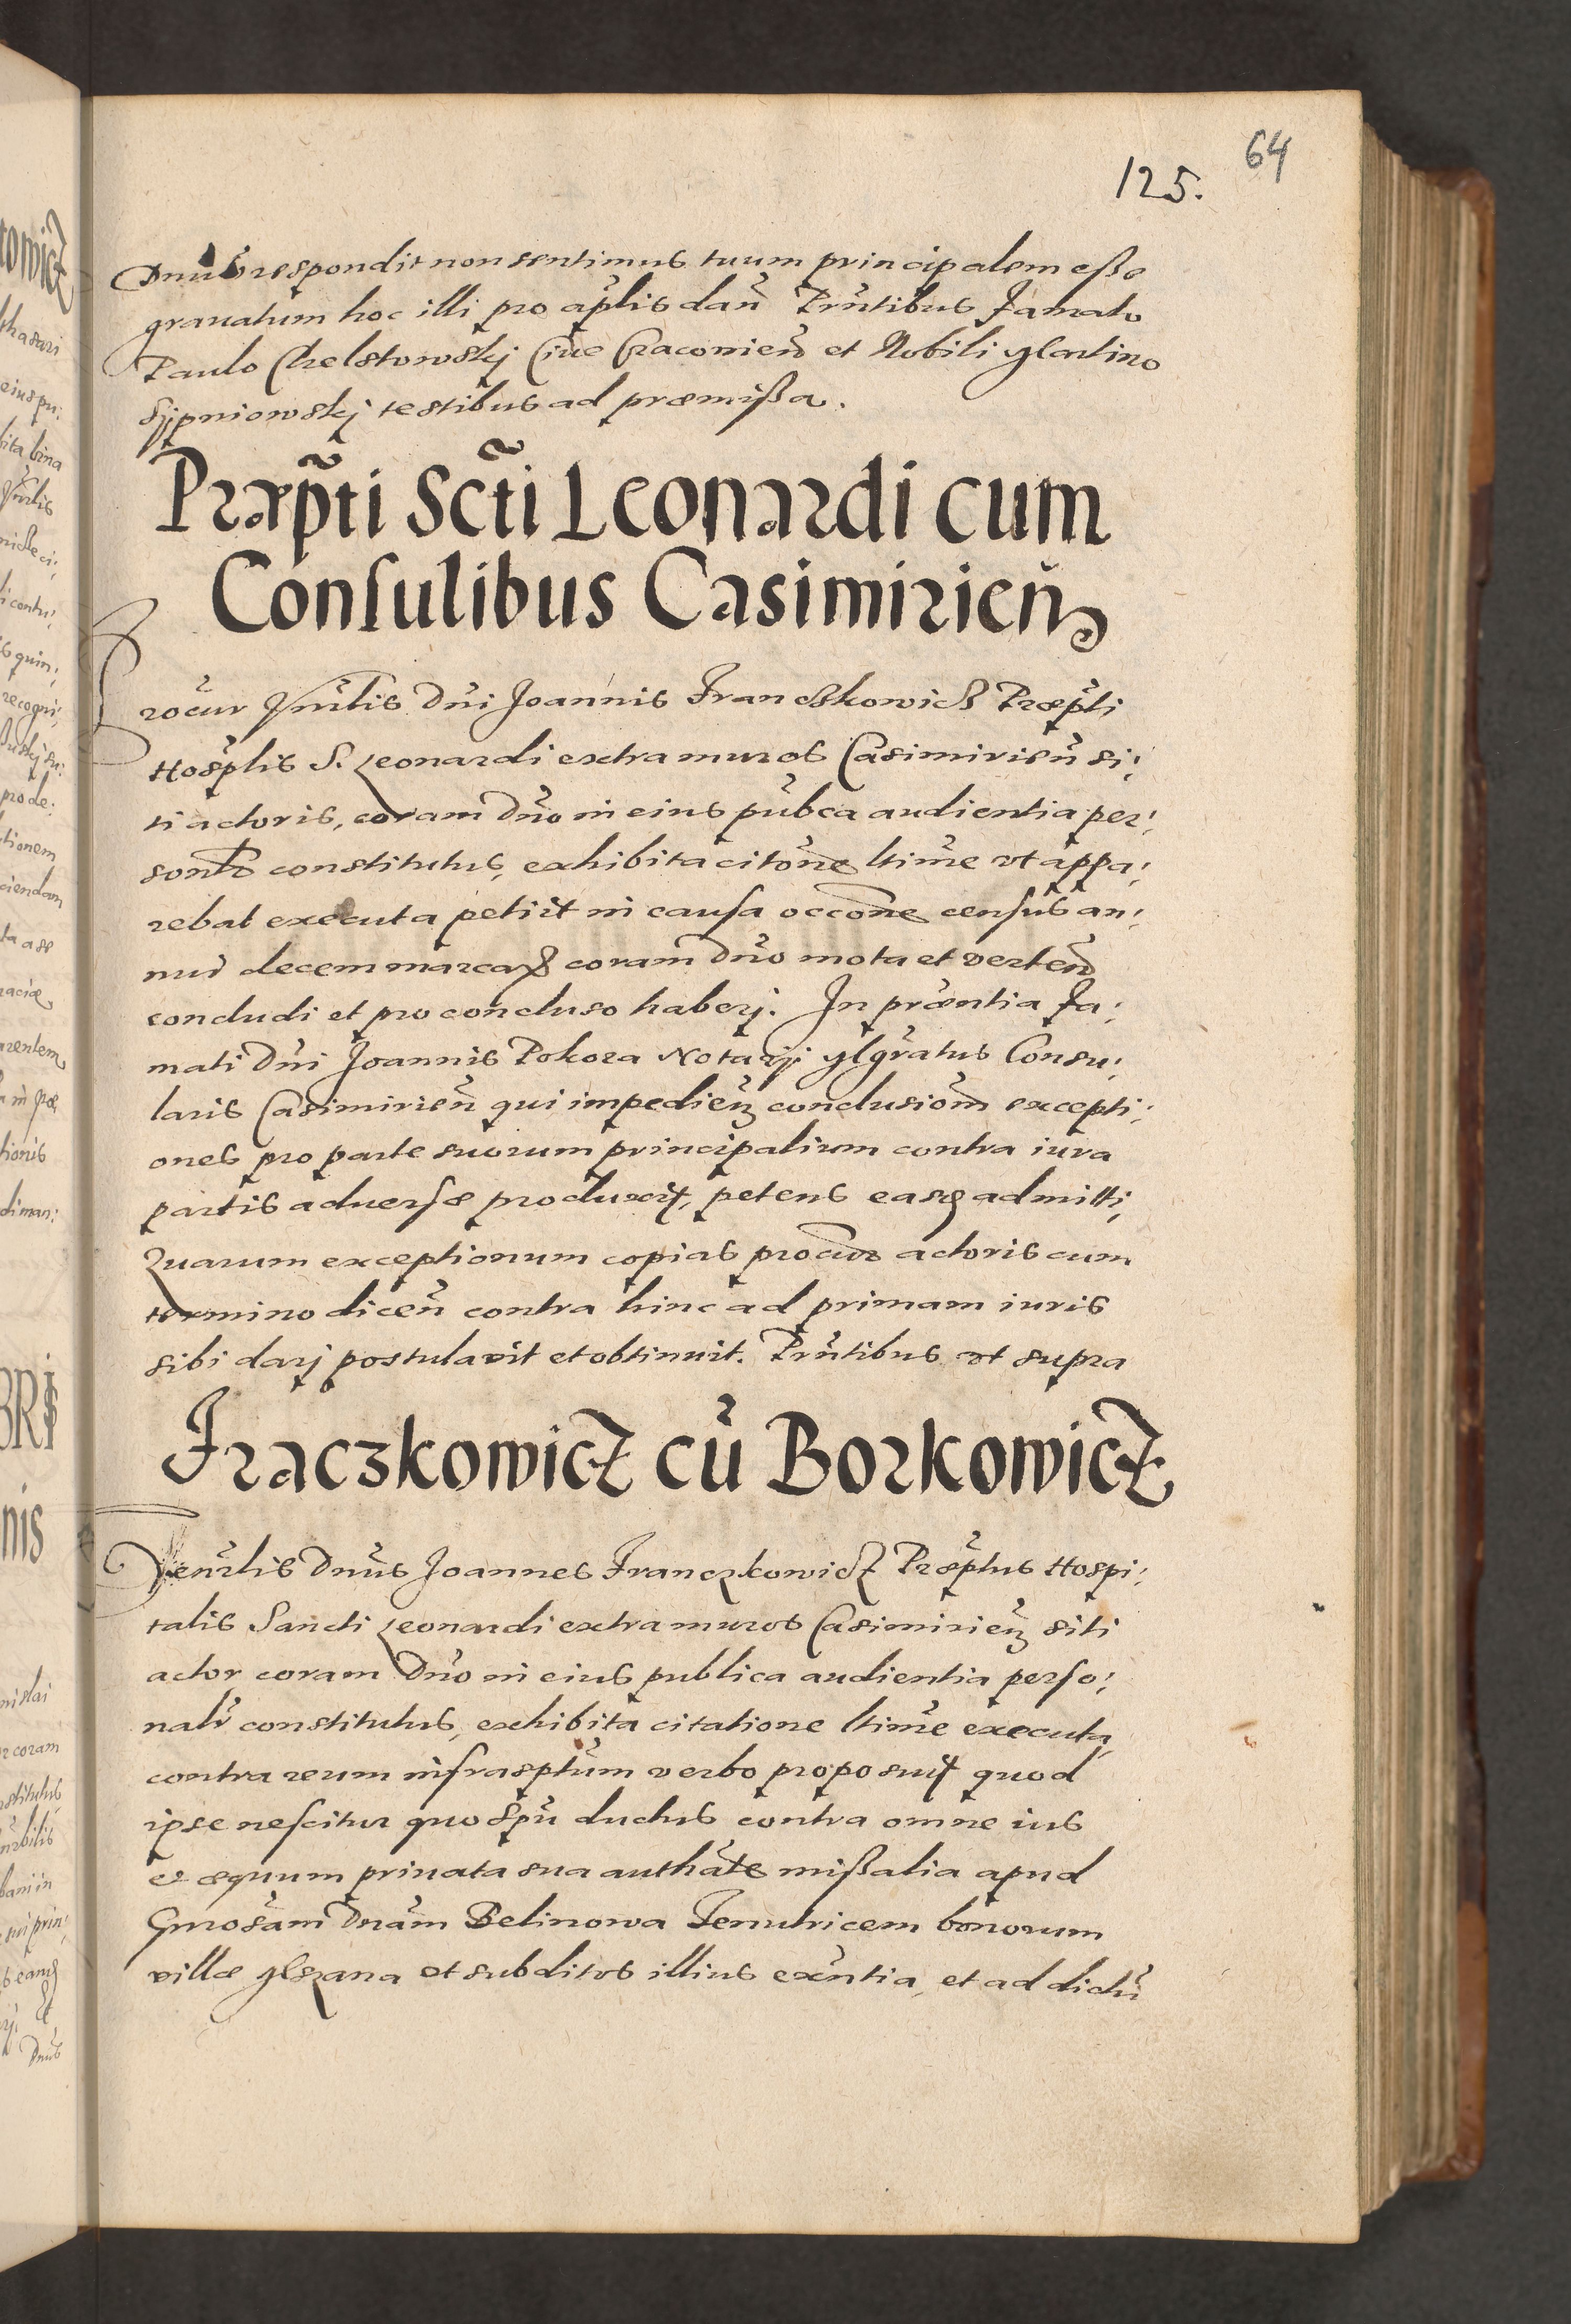 64
125.
Dnus respondit non sentimus tuum principalem eße
grauatum hoc illi pro aplis dan Pntibus Famato
Paulo Chelstowskj Ciue Cracouien et Nobili Martino
Sijpniowskj testibus ad præmißa.
Præpti Scti Leonardi cum
Consulibus Casimirien
Procur Vnrlis Dni Joannis Franczkowicz Præpti
Hosplis S. Leonardi extra muros Casimirien si:
ti actoris, coram Dno in eius pubca audientia per:
sonlr constitutus, exhibita citone ltime vt appa:
rebat executa petijt in causa occone census an:
nui decem marcar coram Dno mota et verten
concludi et pro concluso haberj. In præntia Fa:
mati Dni Joannis Pokora Notarij Mgratus Consu:
laris Casimirien qui impedien conclusionem excepti:
ones pro parte suorum principalium contra iura
partis aduersæ produxit, petens easq admitti,
Quarum exceptionum copias procur actoris cum
termino dicen contra hinc ad primam iuris
sibi darj postulauit et obtinuit. Pntibus vt supra
Fraczkowicz cu Borkowicz
Venrlis Dnus Joannes Franczkowicz Præptus Hospi:
talis Sancti Leonardi extra muros Casimirien siti
actor coram Dno in eius publica audientia perso:
nalr constitutus, exhibita citatione ltime executa,
contra reum infrasptum verbo proposuit quod
ipse nescitur quo Spu ductus contra omne ius
et æquum priuata sua authate mißalia apud
Gnrosam Dnam Belinowa Tenutricem bonorum
villæ Mszana et subditos illius exntia, et ad dictu